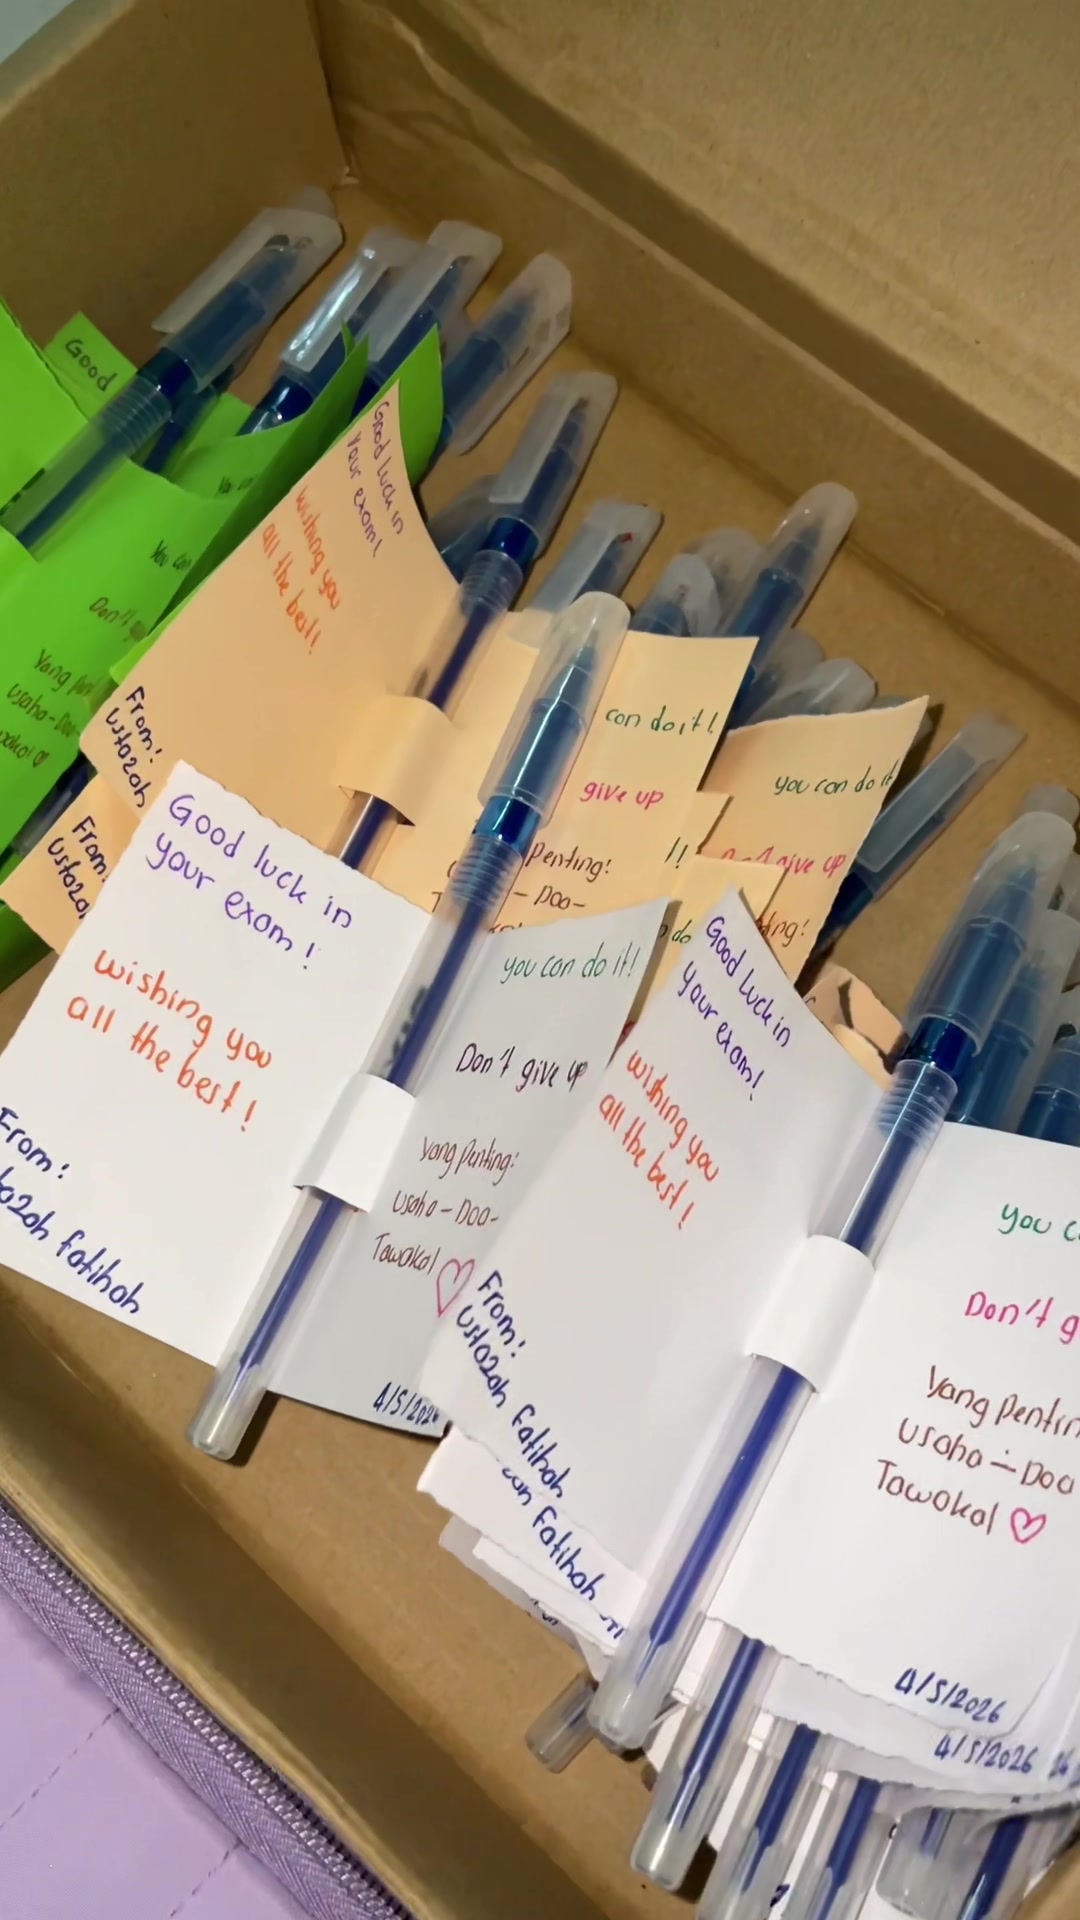 Good
You
You can
Don't
Yang
Usaha - Doa -
Good luck in
your exam!
wishing you
all the best!
From:
Ustazah
From:
can do it!
give up
Penting:
- Doa -
you can do it
Don't give up
Good luck in
your exam!
wishing you
all the best!
From:
Fatihah
you can do it!
Don't give up
Yang Penting:
Usaha - Doa -
Tawakal ♡
4/5/2026
Good luck in
your exam!
wishing you
all the best!
From:
Ustazah Fatihah
Fatihah
you
Don't
Yang
Usaha - Doa
Tawakal ♡
4/5/2026
4/5/2026